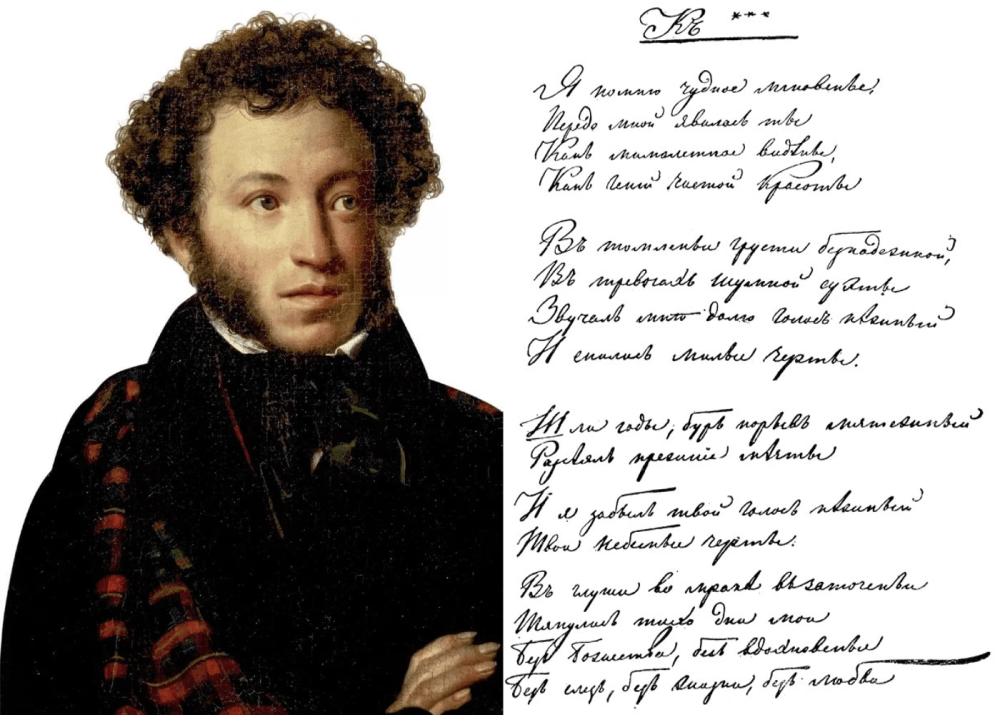 Къ ***
Я помню чудное мгновенье,
Передо мной явилась ты
Какъ мимолетное видѣнье,
Какъ геній чистой красоты
Въ томленьи грусти безнадежной,
Въ тревогахъ шумной суѣты
Звучалъ мнѣ долго голосъ нѣжный
И снились милые черты.
Шли годы, бурь порывъ мятежный
Разсѣялъ прежніе мѣчты
И я забылъ твой голосъ нѣжный
Твои небесные черты.
Въ глуши во мракѣ въ заточеньи
Тянулись тихо дни мои
Безъ Божества, безъ вдохновенья
Безъ слезъ, безъ жизни, безъ любви